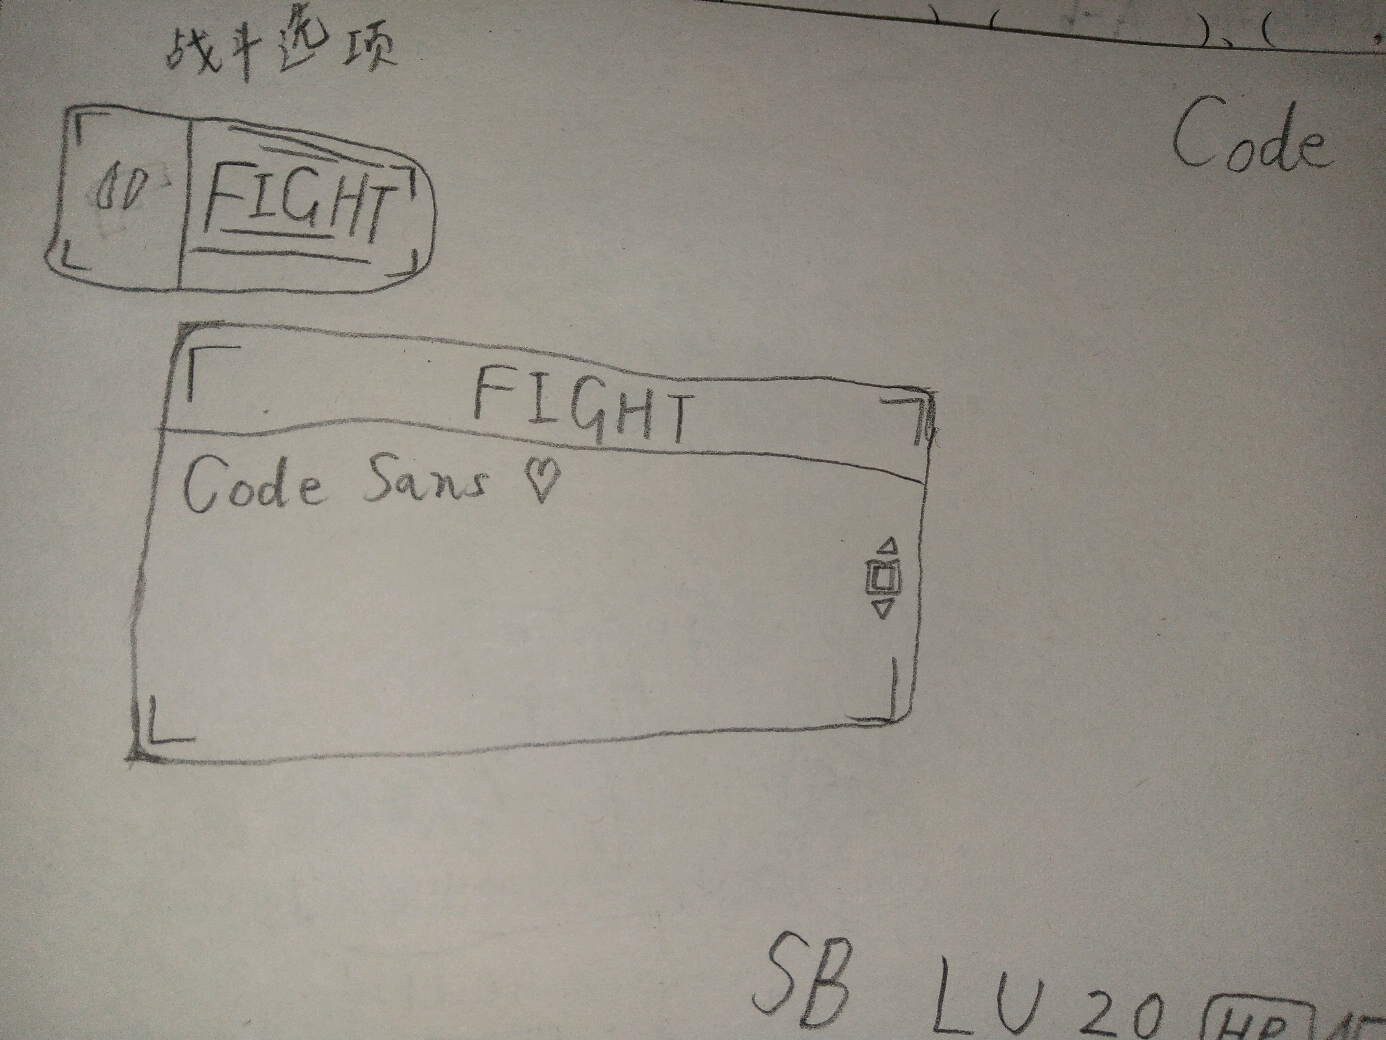 战斗选项
Code
FIGHT
FIGHT
Code Sans ♡
SB LU 20 HP